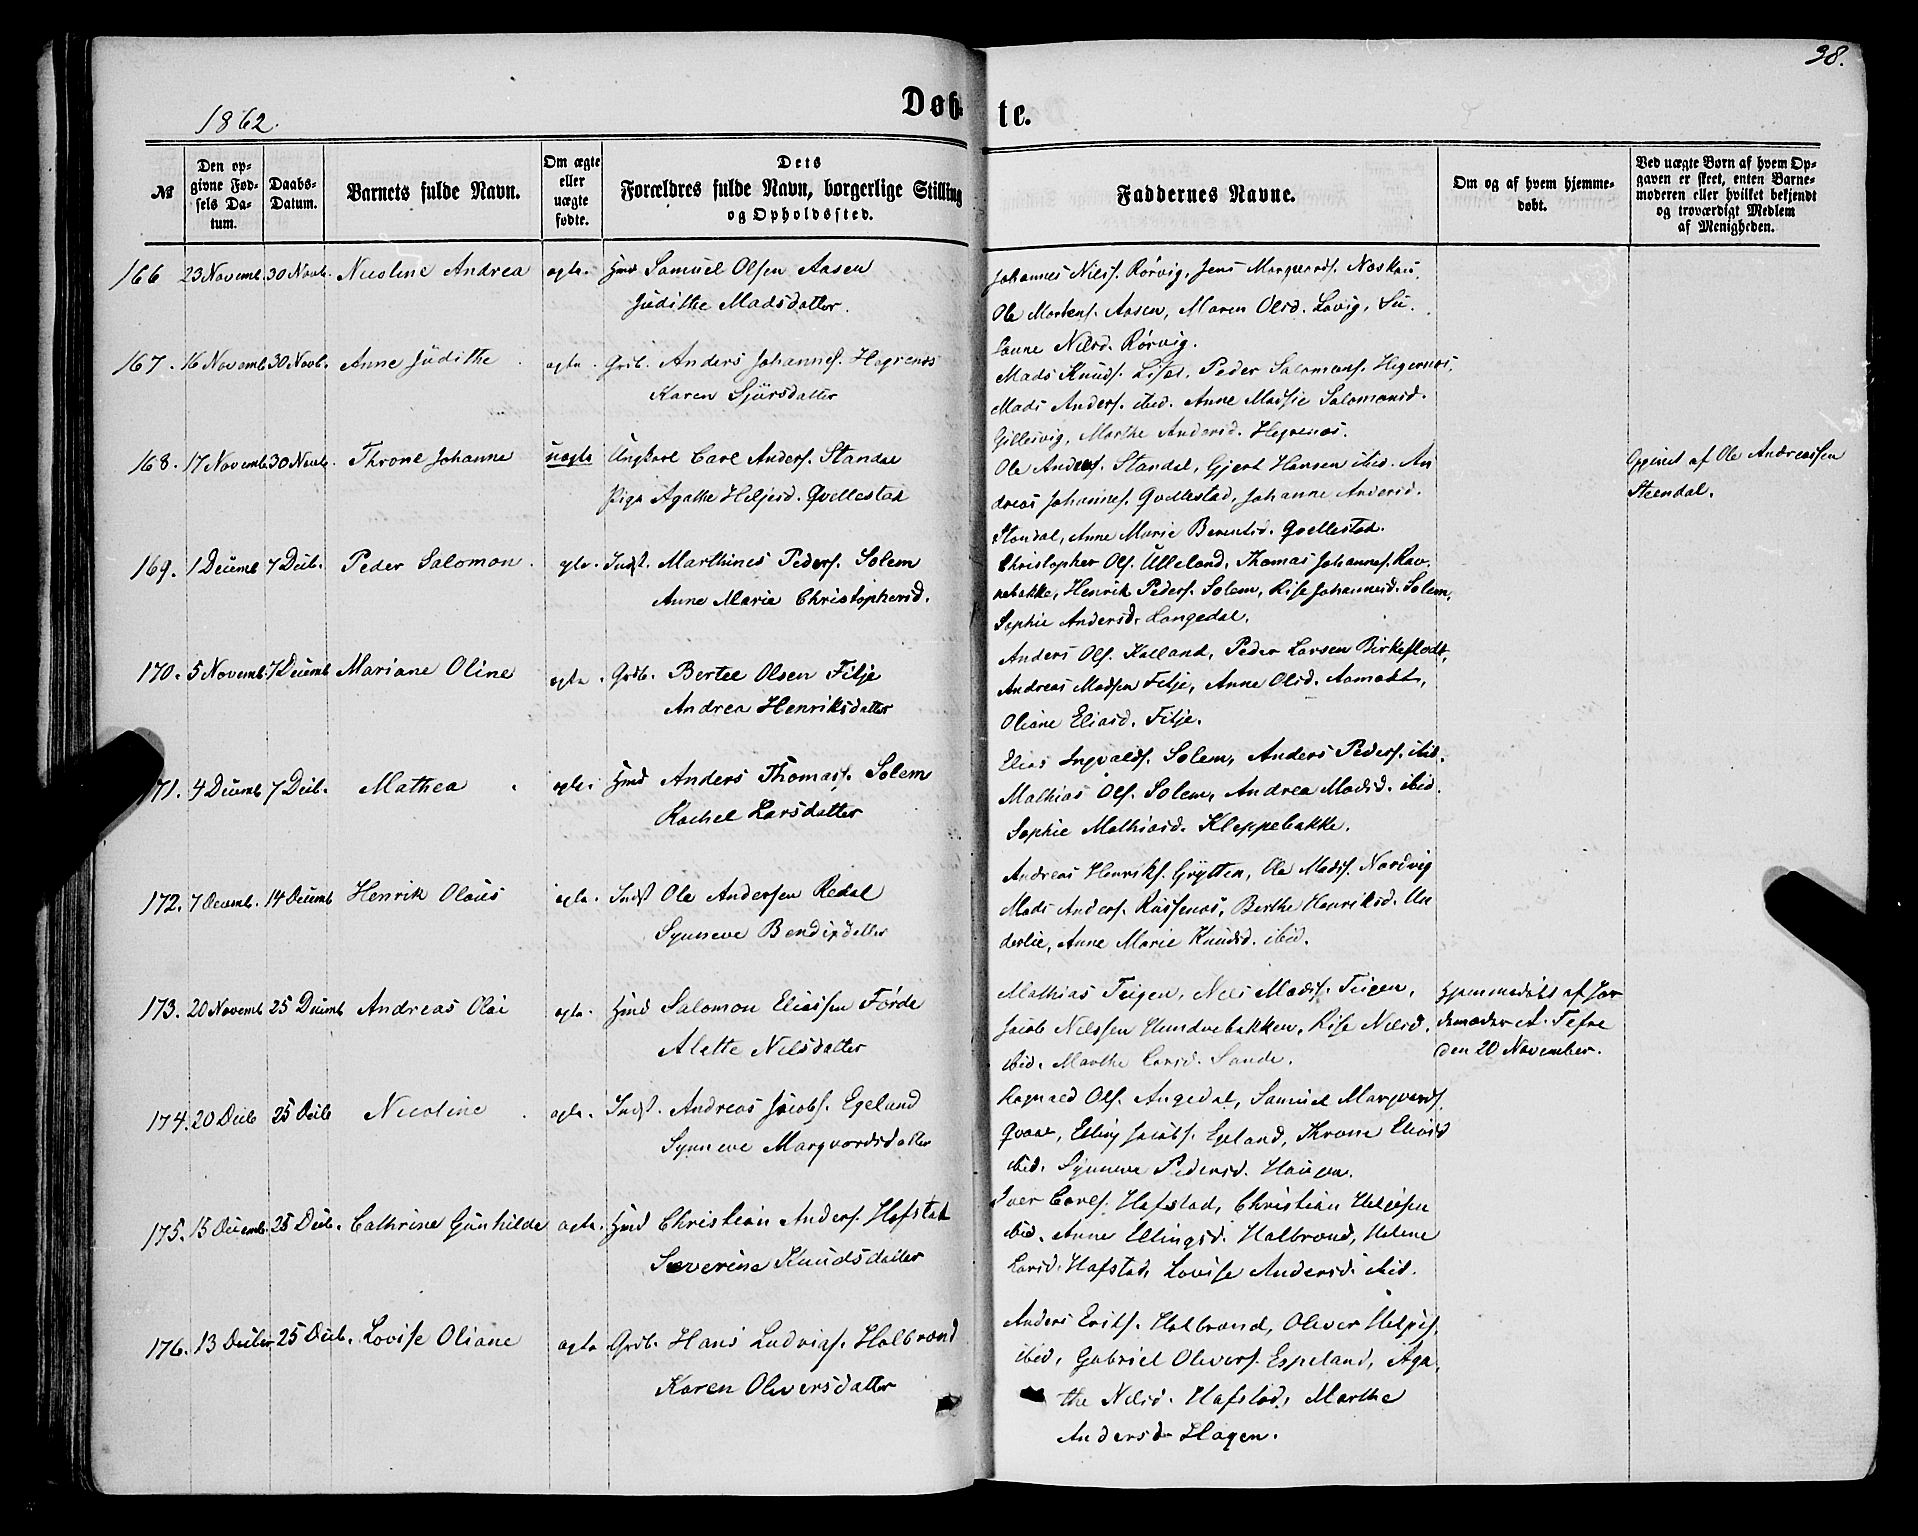 38.
1862.
Døb-
te.
№
Den op-
givne Fød-
sels Da-
tum.
Daabs-
Datum.
Barnets fulde Navn.
Om ægte
eller
uægte
fødte.
Dets
Forældres fulde Navn, borgerlige Stilling
og Opholdssted.
Faddernes Navne.
Om og af hvem hjemme-
døbt.
Ved uægte Børn af hvem Op-
gaven er skeet, enten Barne-
moderen eller hvilket bekjendt
og troværdigt Medlem
af Menigheden.
166 23 Novemb 30 Novb. Nicoline Andrea ægte. Hmd Samuel Olsen Aasen
Judithe Madsdatter.
Johannes Nils. Rørvig, Jens Marqvards.
Ole Mortens. Aasen, Maren Olsd. Lavig, Su-
sanne Nilsd. Rørvig.
167. 16 Novemb 30 Novb. Anne Judithe ægte. Grdb. Anders Johannes. Hegrenæs
Karen Sjursdatter
Mads Knuds. Peder Salomons. Hegrenæs,
Mads Anders. ibid. Anne Madsie Salomonsd.
Gillesvig, Marthe Andersd. Hegrenæs.
168. 17 Novemb 30 Novb. Throne Johanne uægte Ungkarl Carl Anders. Standal
Pige Agathe Heljesd. Qvellestad
Ole Anders. Standal, Gjert Hansen ibid. An
dreas Johannes. Qvellestad, Johanne Andersd.
Standal, Anne Marie Berentsd. Qvellestad.
Opgivet af Ole Andreassen
Steendal.
169. 1 Decemb 7 Decb. Peder Salomon. ægte. Indst. Marthines Peders. Solem
Anne Marie Christophersd.
Christopher Ols. Ulleland, Thomas Johannes. Rav-
nebakke, Henrik Peders. Solem, Rise Johannesd. Solem,
Sophie Andersd. Langedal.
170. 5 Novemb. 7 Decemb Mariane Oline ægte. Grdb. Bertel Olsen Fitje
Andrea Henriksdatter
Anders Ols. Kalland, Peder Larsen Birkeflødt,
Andreas Madsen Fitje, Anne Olsd. Aamodt,
Oliane Eliasd. Fitje.
171. 4 Decemb 7 Decb. Mathea ægte. Hmd Anders Thomass. Solem
Rachel Larsdatter
Elias Ingvalds. Solem, Anders Peders. ibid.
Mathias Ols. Solem, Andrea Madsd. ibid.
Sophie Mathiasd. Kleppebakke.
172. 7 Decemb. 14 Decemb Henrik Olaus ægte. Indst Ole Andersen Redal
Synneve Bendixdatter
Andreas Henriks. Grytten, Ole Mads. Nordvig
Mads Anders. Russenæs, Berthe Henriksd. Un
derlie, Anne Marie Knudsd. ibid.
173. 20 Novemb 25 Decemb Andreas Olai ægte. Hmd Salomon Eliassen Førde
Alette Nilsdatter
Mathias Teigen, Nils Mads. Teigen,
Jacob Nilssen Hundvebakken, Rise Nilsd.
ibid. Marthe Larsd. Sande.
Hjemmedøbt af Jor
demoder A. Tefre
den 20 November.
174. 20 Decb 25 Decb Nicoline ægte. Indst. Andreas Jacobs. Egeland
Synneve Marqvardsdatter
Ragnald Ols. Angedal, Samuel Marqvards.
Qvaal, Elling Jacobs. Egeland, Throne Eliasd
ibid. Synneve Pedersd. Haugen.
175. 15 Decemb 25 Decb. Cathrine Gunhilde ægte. Hmd Christian Anders. Hafstad
Severine Knudsdatter
Iver Carls. Hafstad, Christian Heljesen
ibid. Anne Ellingsd. Halbrænd, Helene
Larsd. Hafstad, Lovise Andersd. ibid.
176. 13 Decber 25 Decb. Lovise Oliane ægte Grdb. Hans Ludvigs. Halbrænd
Karen Oliversdatter
Anders Eriks. Halbrænd, Oliver Heljes.
ibid, Gabriel Olivers. Espeland, Aga-
the Nilsd. Hafstad, Marthe
Andersd Hagen.